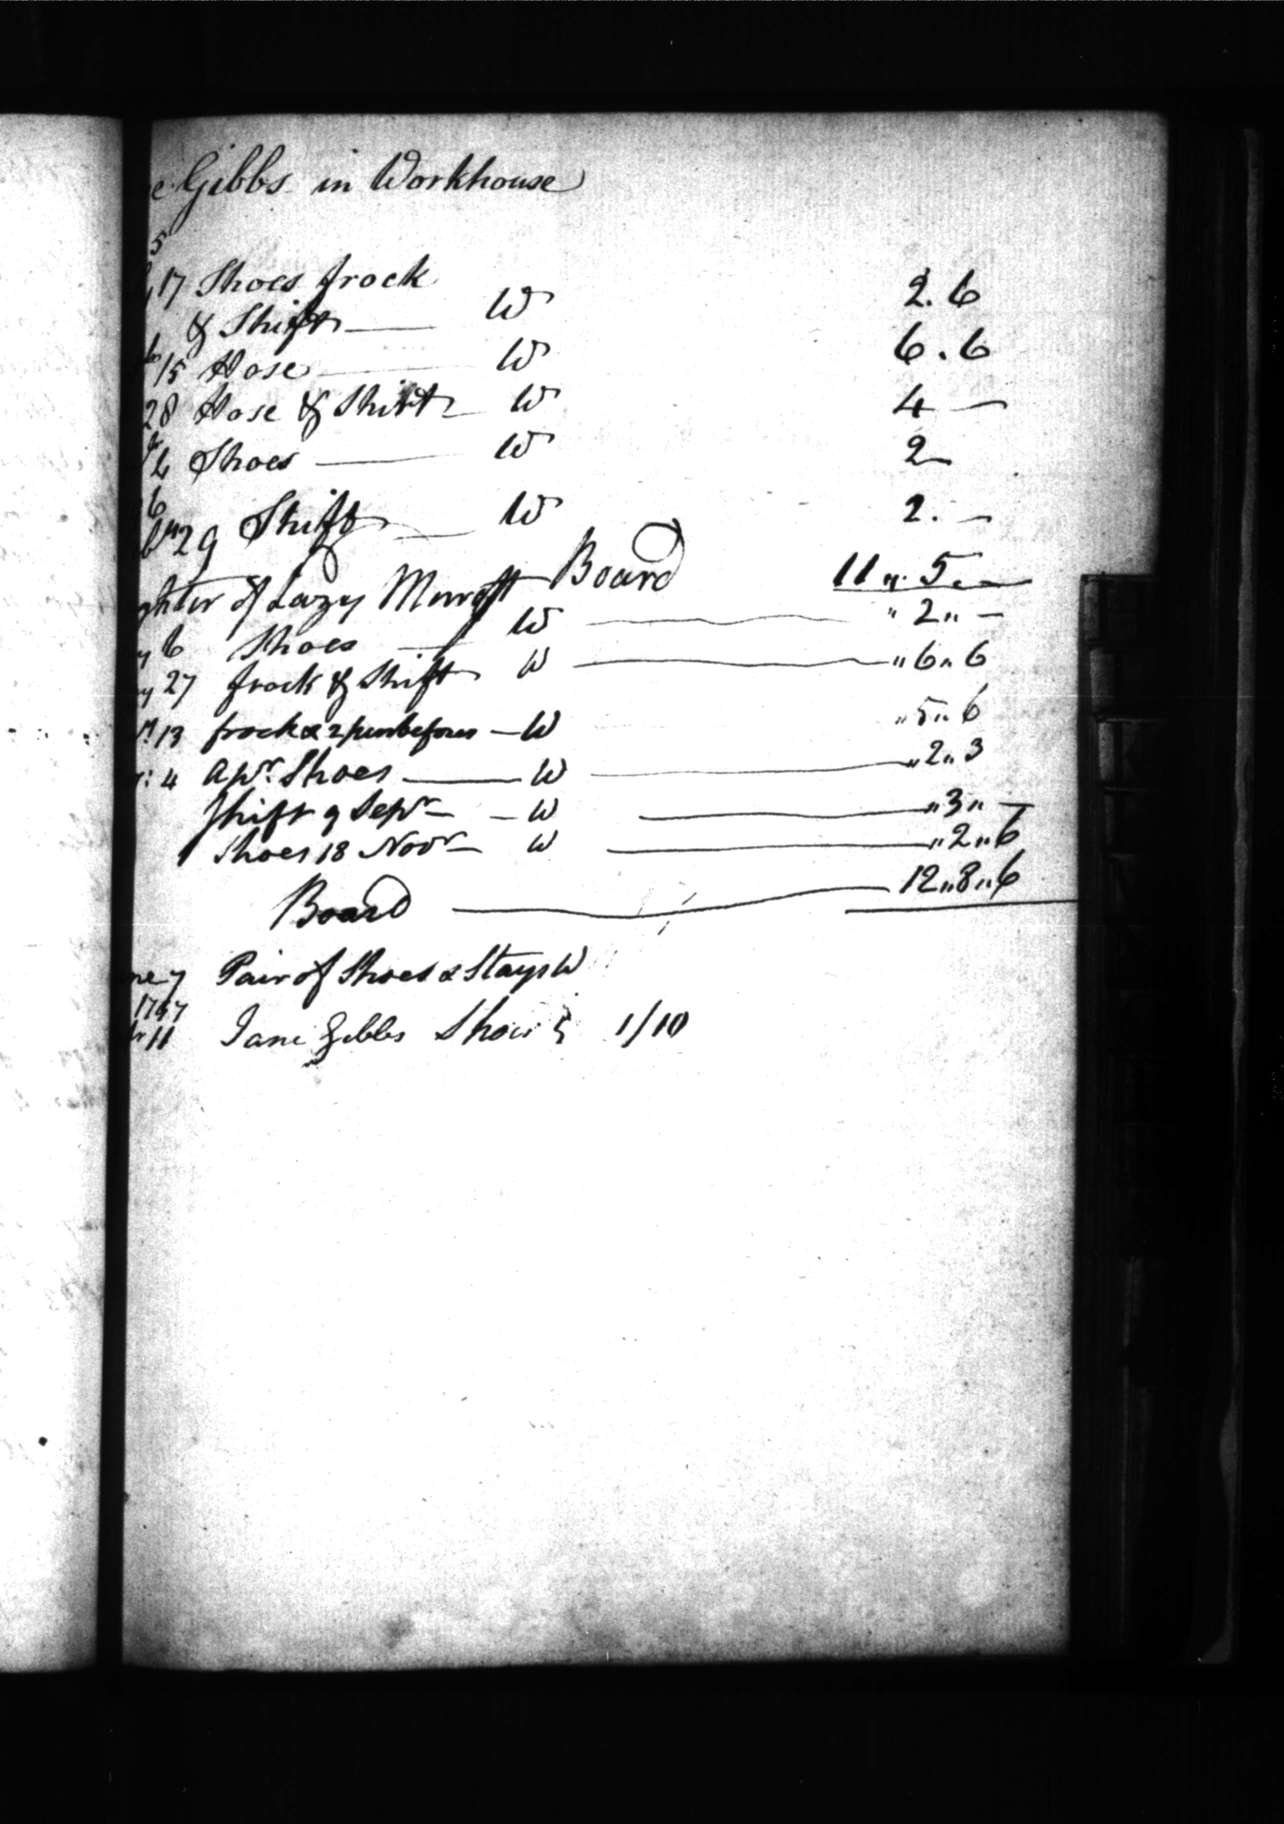 e Gibbs in Workhouse
5
17 Shoes frock
& Shift W 2.6
15 Hose W 6.6
28 Hose & Shirt W 4 —
Shoes W 2 —
6
29 Shift W 2. —
Board 11 " 5. —
ghter of Lazy
y 6 Shoes W " 2 " —
y 27 frock & Shift W " 6 " 6
13 frock & 2 W " 5 " 6
4 Apr. Shoes W " 2 " 3
Shift 9 Sepr W " 3 " —
Shoes 18 Novr W " 2 " 6
Board 12 " 8 " 6
ne 7 Pair of Shoes & Stays W
17 7
11 Jane Gibbs Shoes 1/10